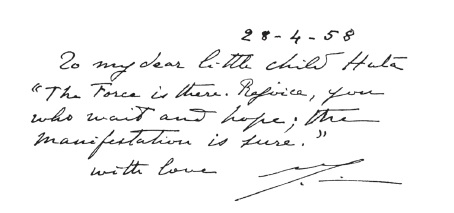 28-4-58
To my dear little child Huta
"The Force is there. Rejoice, you
who wait and hope; the
manifestation is sure."
with love